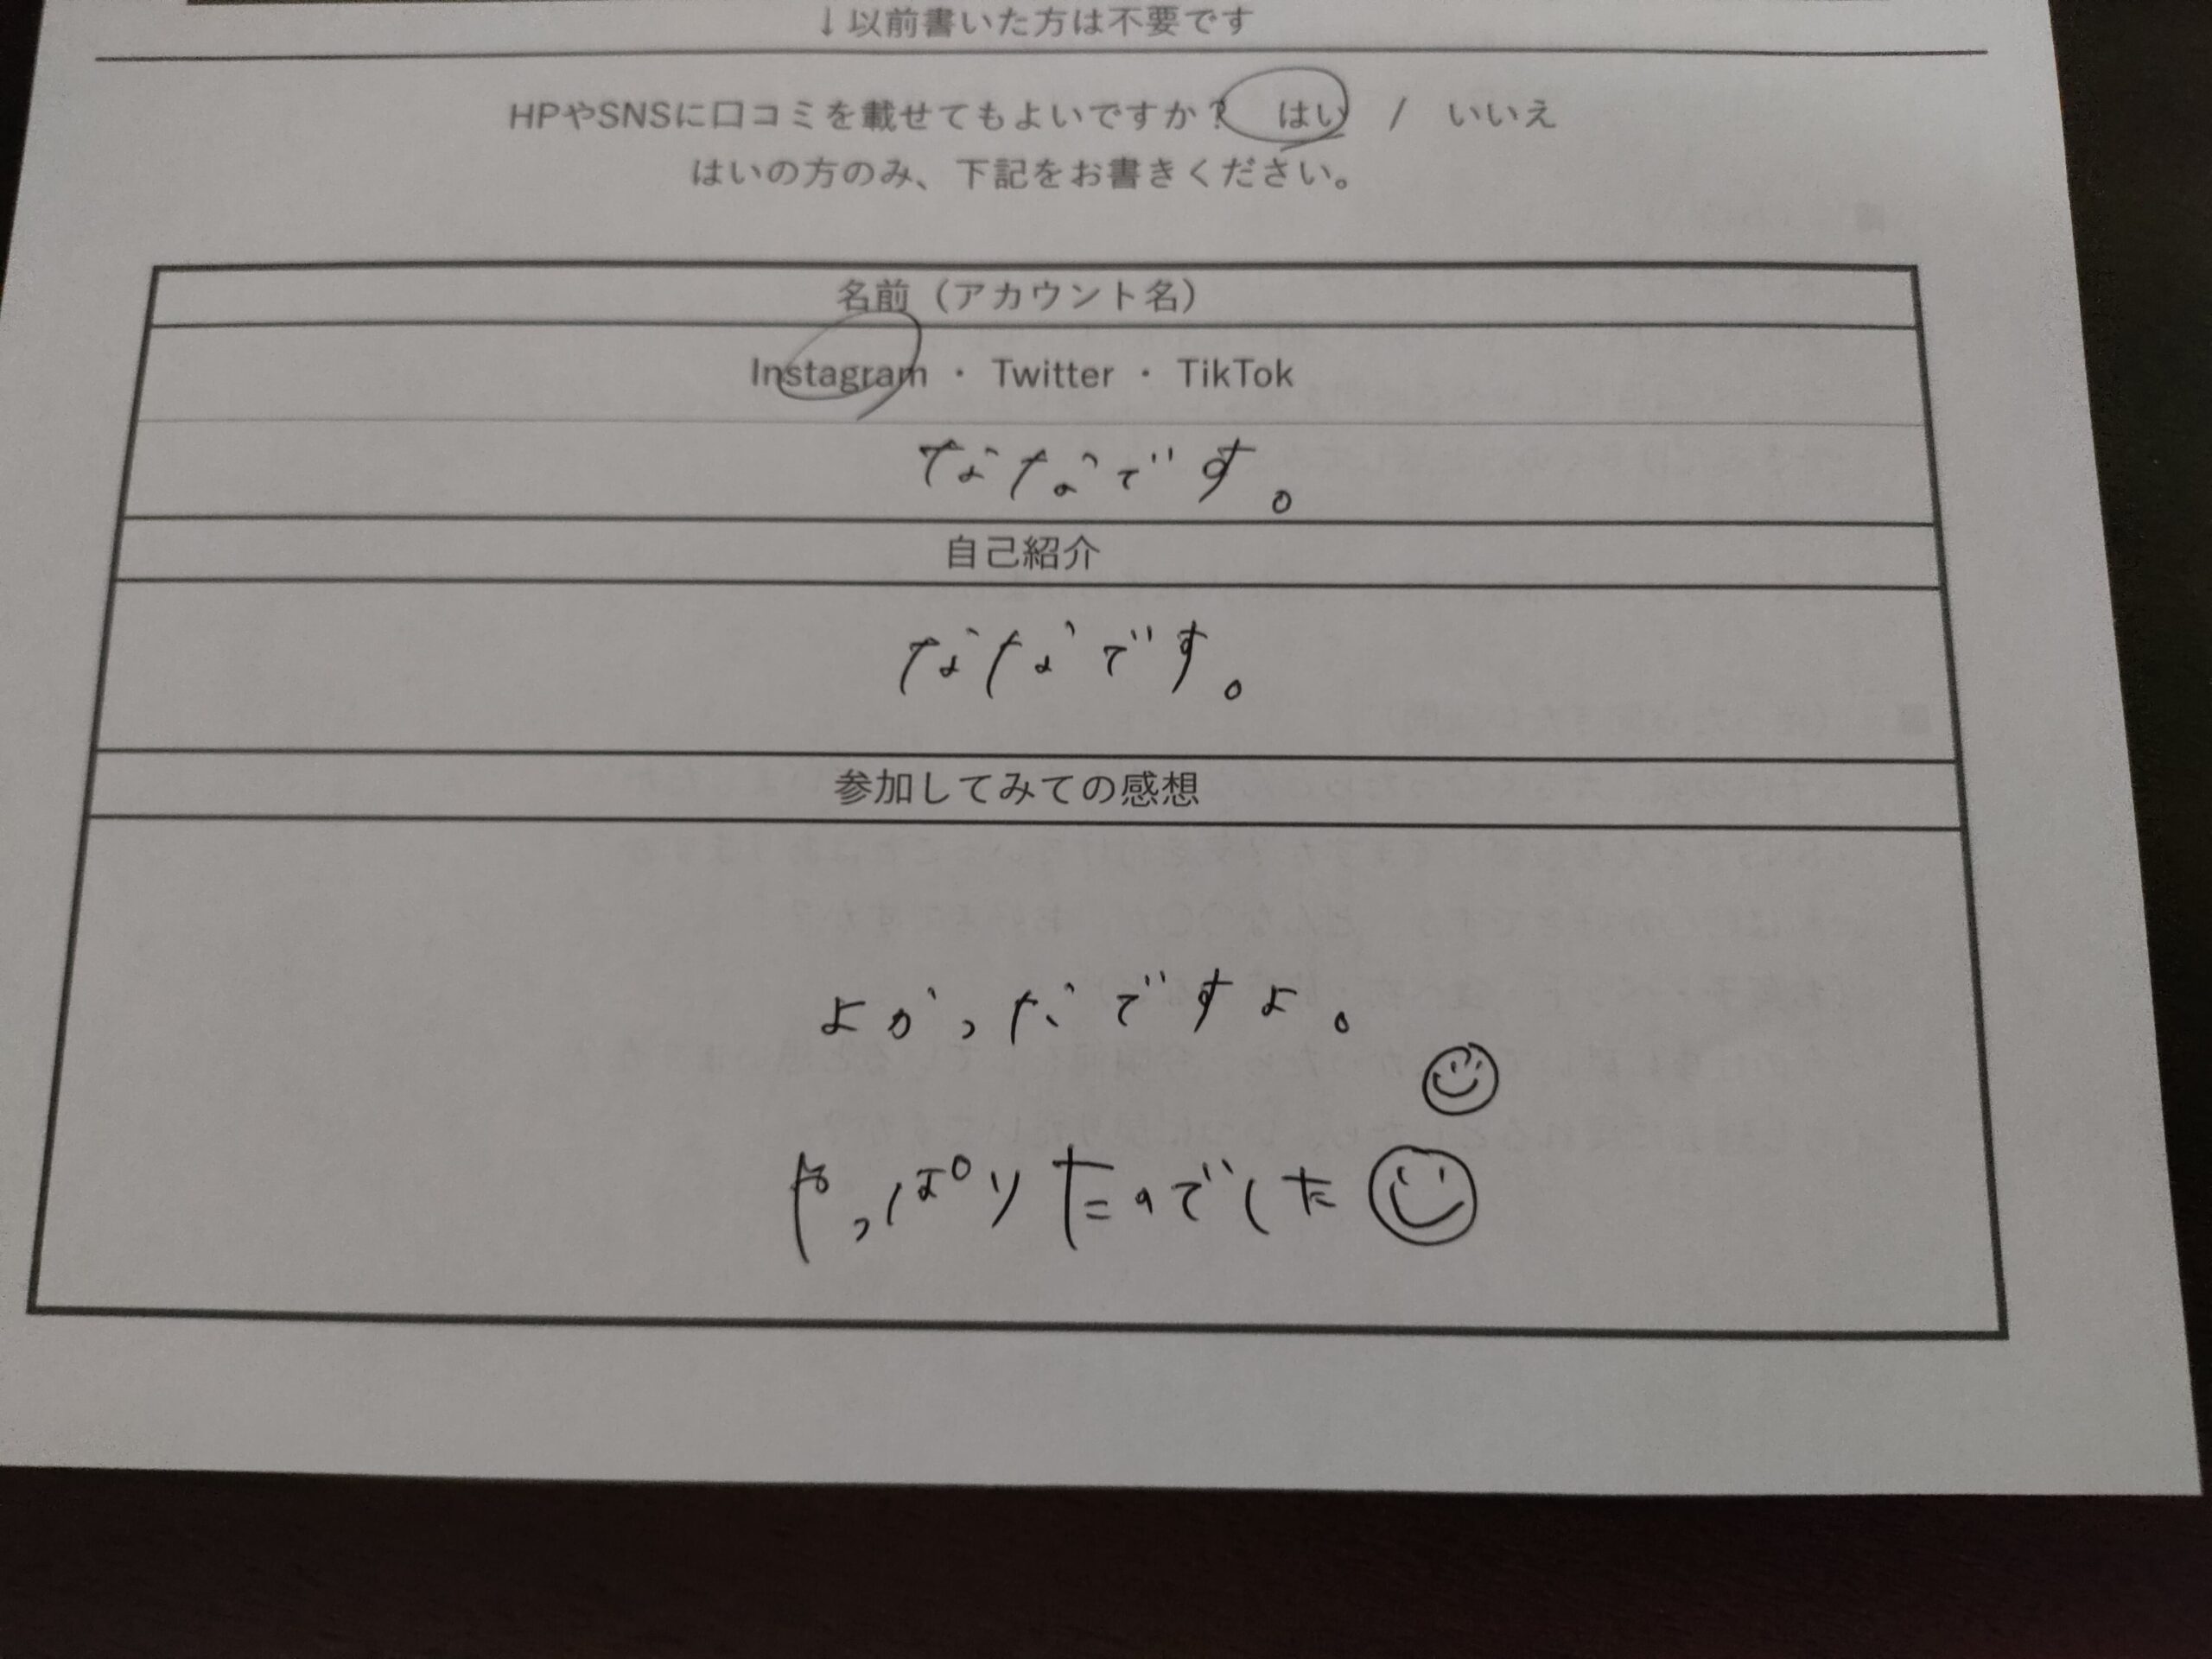 ↓以前書いた方は不要です
HPやSNSに口コミを載せてもよいですか？ はい / いいえ
はいの方のみ、下記をお書きください。
名前（アカウント名）
Instagram ・ Twitter ・ TikTok
ななです。
自己紹介
ななです。
参加してみての感想
よかったですよ。
やっぱりたのでした